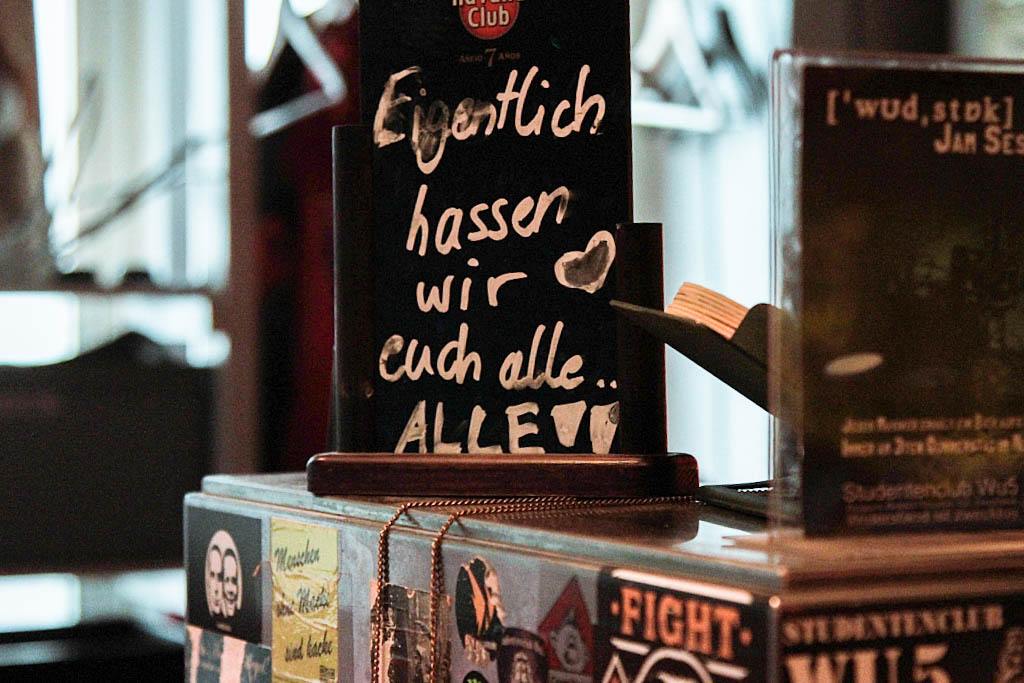 Club
AÑEJO 7 AÑOS
Eigentlich
hassen
wir
euch alle..
ALLE!!
['wʊd,stɒk]
JAM SES
Studentenclub Wu5
Menschen
wie Martin
sind kacke
·FIGHT·
STUDENTENCLUB
WU5